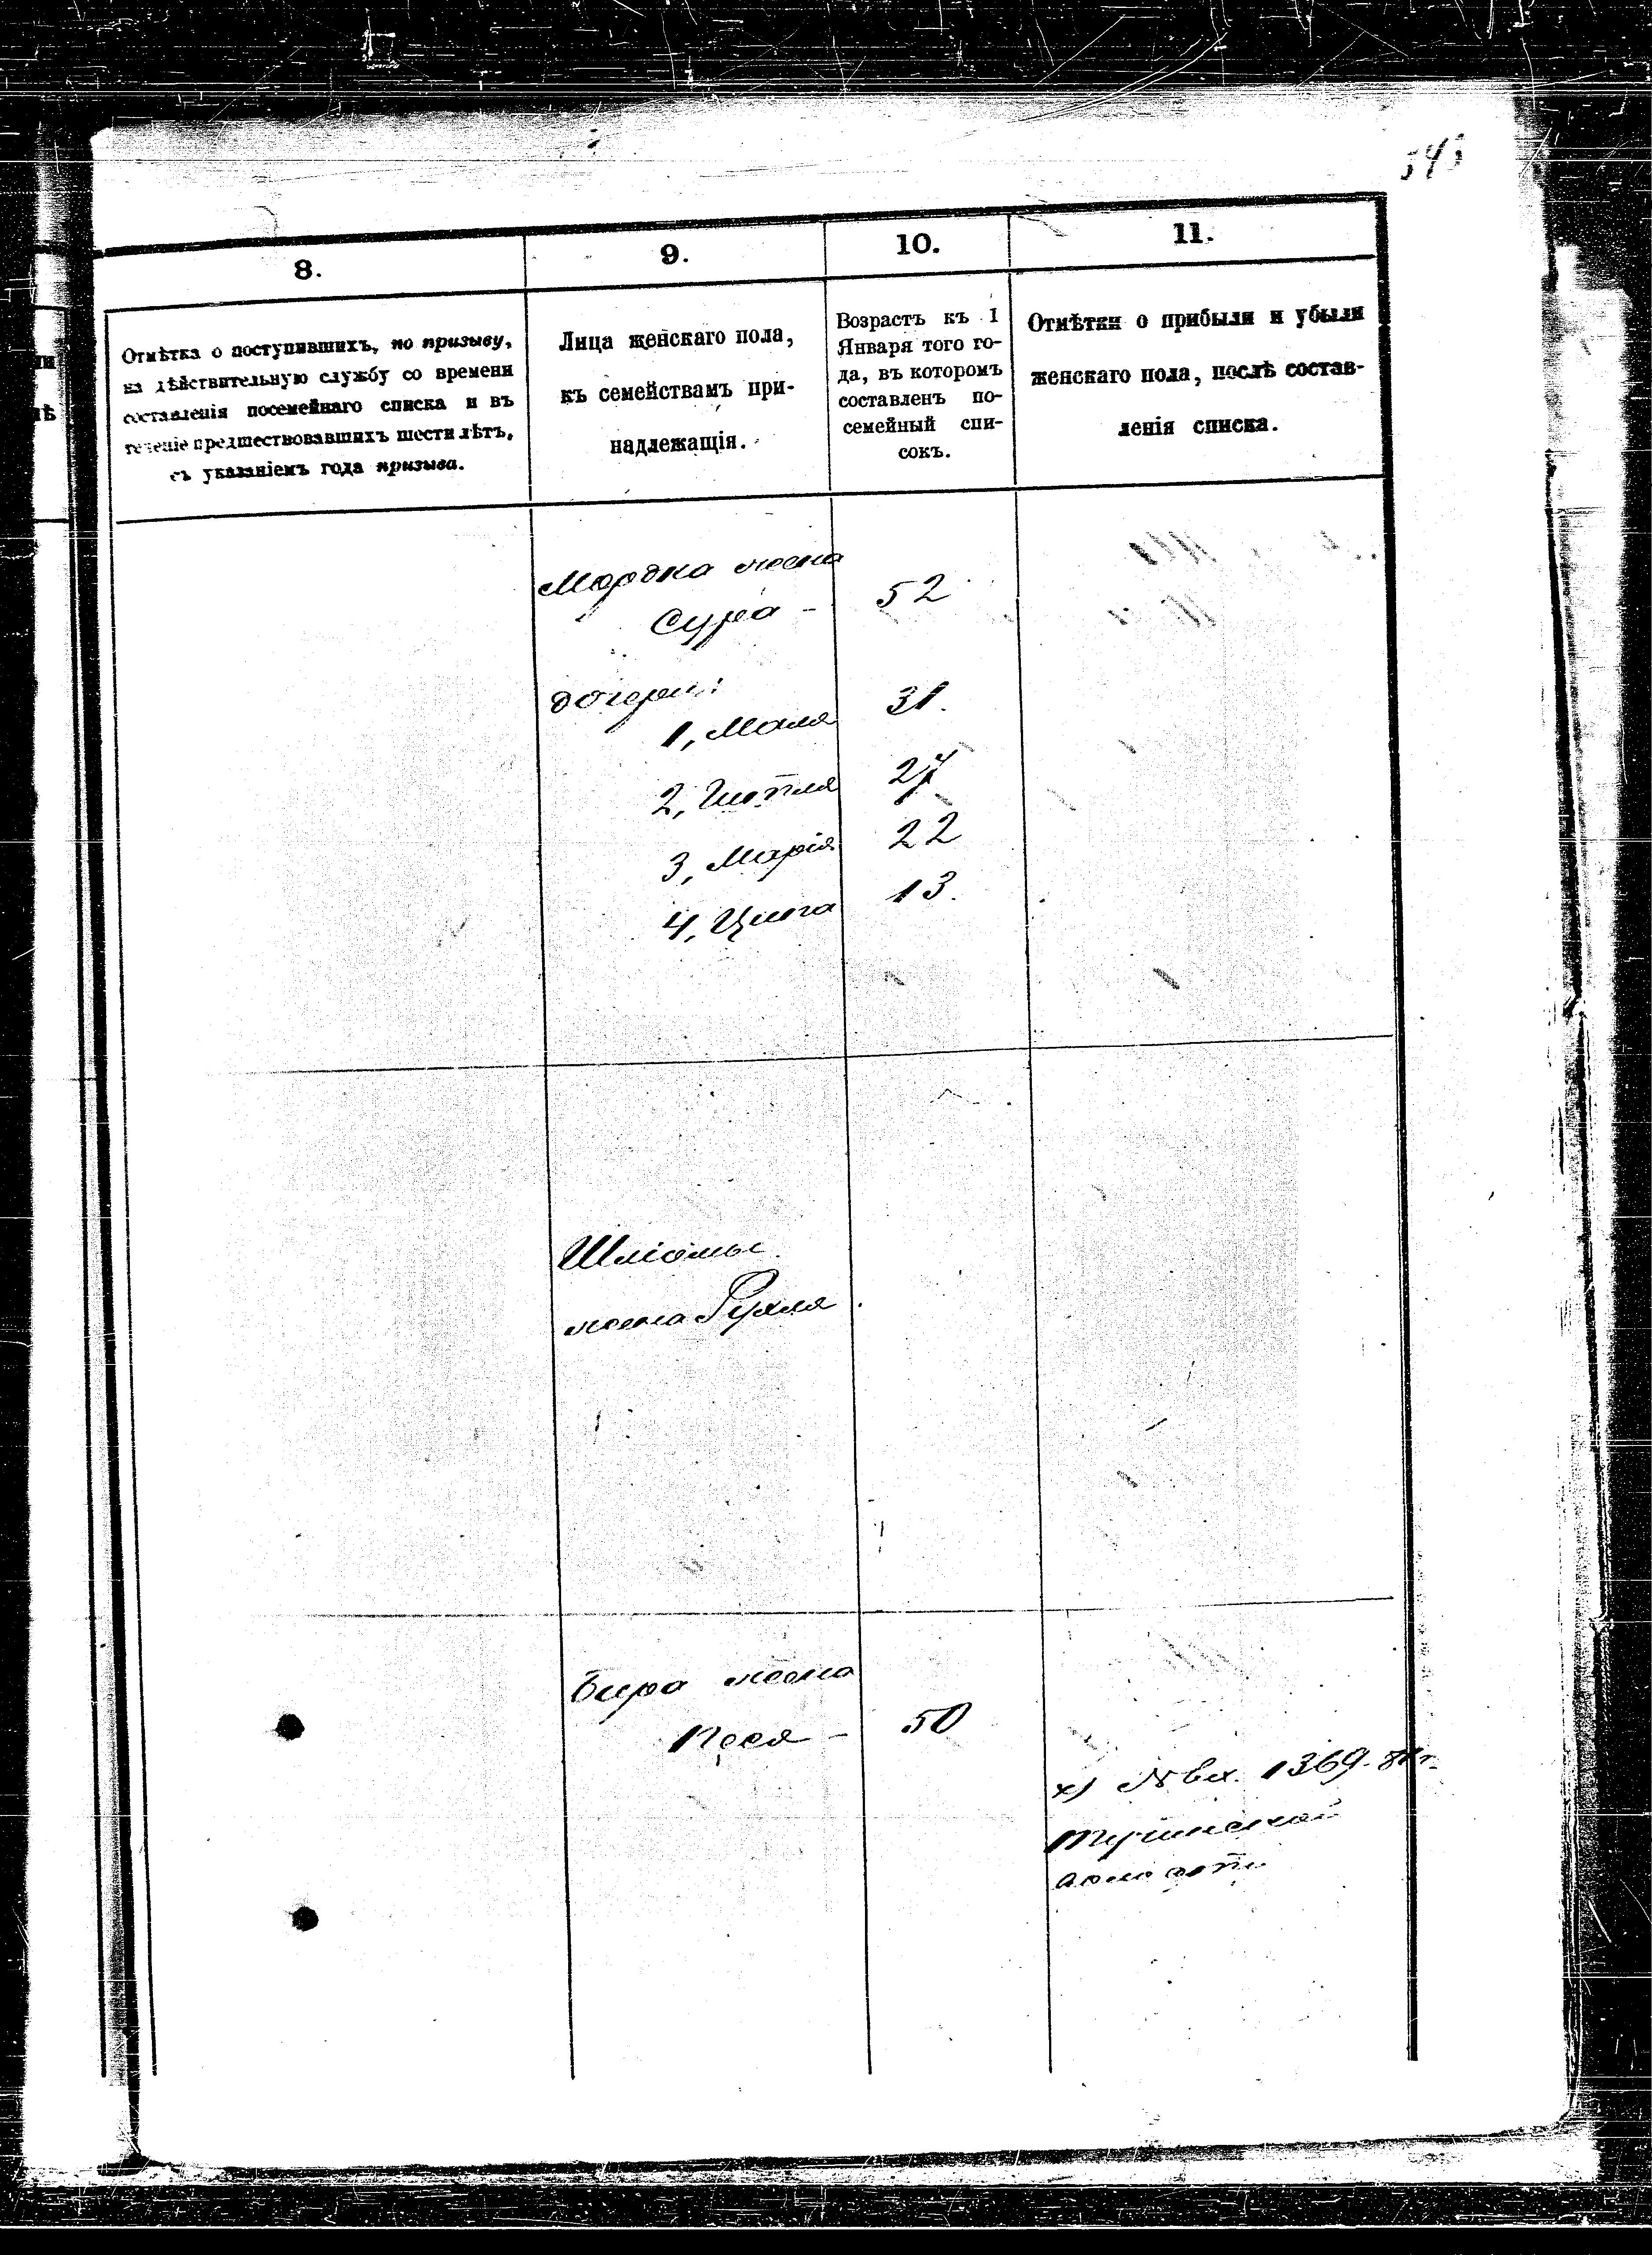 545
8.
9.
10.
11.
Отмѣтка о поступившихъ, по призыву,
на дѣйствительную службу со времени
составленія посемейнаго списка и въ
теченіе предшествовавшихъ шести лѣтъ,
съ указаніемъ года призыва.
Лица женскаго пола,
къ семействамъ при-
надлежащія.
Возрастъ къ 1
Января того го-
да, въ которомъ
составленъ по-
семейный спи-
сокъ.
Отмѣтки о прибыли и убыли
женскаго пола, послѣ состав-
ленія списка.
Мордка жена
Сура - 52
дочери:
1, Маля 31.
2, 27
3, Марія 22
4, 13.
Шліомы
жена Рухля.
Бера жена
Песя - 50
х) № вх. 1369.
волости